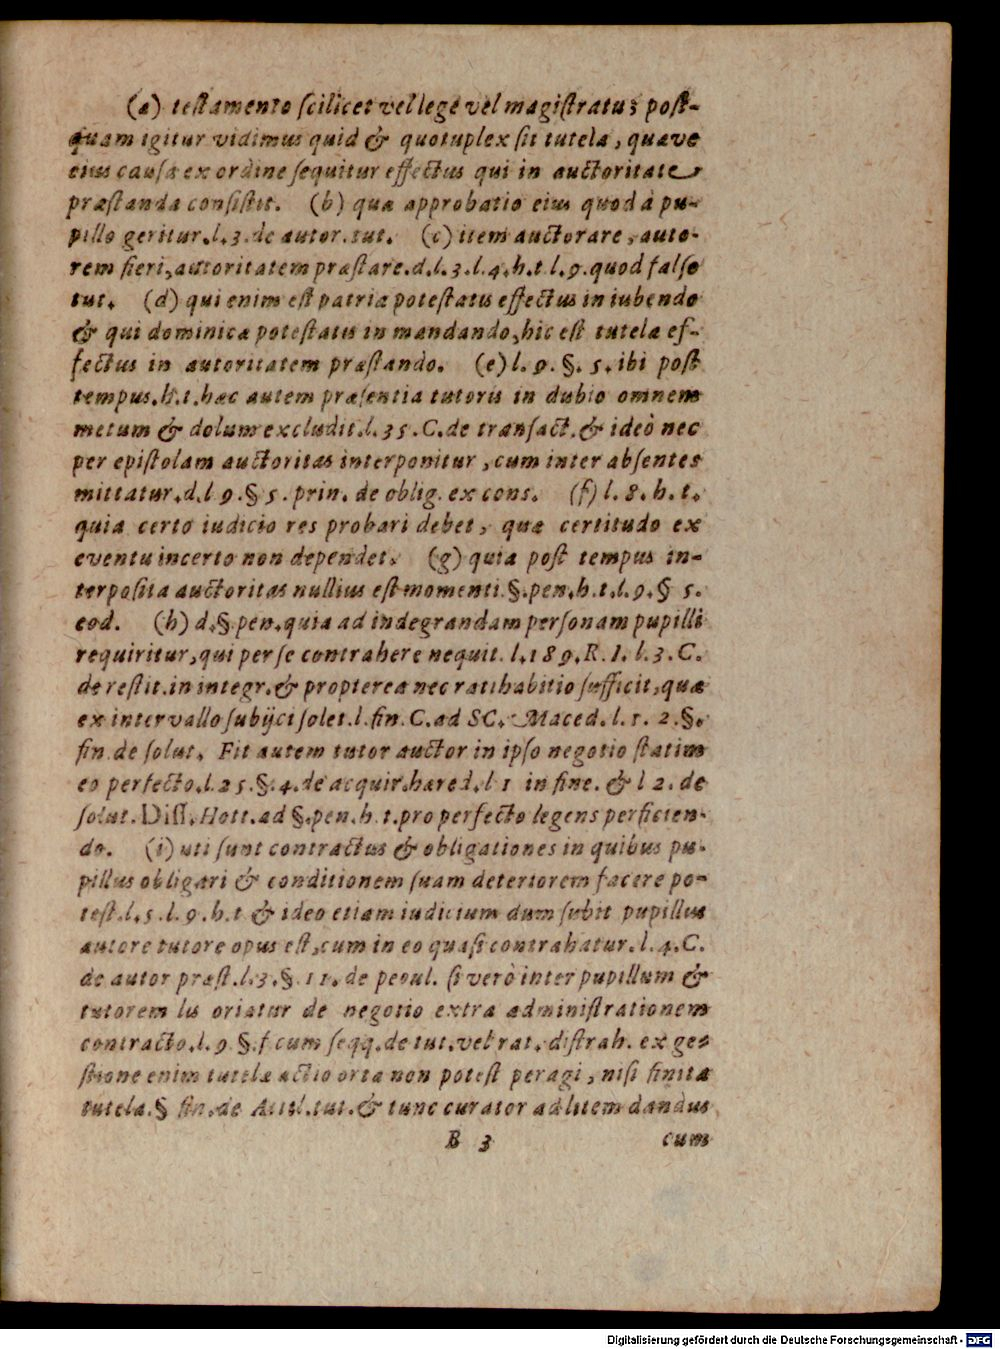 (a) testamento scilicet vel lege vel magistratus post-
quam igitur vidimus quid & quotuplex sit tutela, quæve
eius causæ ex ordine sequitur effectus qui in auctoritate
præstanda consistit. (b) quæ approbatio eius quod à pu-
pillo geritur. l. 3. de autor. tut. (c) item auctorare, auto-
rem fieri, autoritatem præstare. d. l. 3. l. 4. h. t. l. 9. quod falso
tut. (d) qui enim est patriæ potestatis effectus in iubendo
& qui dominicæ potestatis in mandando, hic est tutelæ ef-
fectus in autoritatem præstando. (e) l. 9. §. 5. ibi post
tempus. h. t. hæc autem præsentia tutoris in dubio omnem
metum & dolum excludit. l. 35. C. de transact. & ideò nec
per epistolam auctoritas interponitur, cum inter absentes
mittatur. d. l 9. § 5. prin. de oblig. ex cons. (f) l. 8. h. t.
quia certo iudicio res probari debet, quæ certitudo ex
eventu incerto non dependet. (g) quia post tempus in-
terposita auctoritas nullius est momenti. §. pen. h. t. l. 9. § 5.
eod. (h) d. § pen. quia ad indegrandam personam pupilli
requiritur, qui per se contrahere nequit. l. 189. R. I. l. 3. C.
de restit. in integr. & propterea nec ratihabitio sufficit, quæ
ex intervallo subijci solet. l. fin. C. ad SC. Maced. l. 1. 2. §.
fin. de solut. Fit autem tutor auctor in ipso negotio statim
eo perfecto. l. 25. §. 4. de acquir. hæred. l 1 in fine. & l 2. de
solut. Diss. Hott. ad §. pen. h. t. pro perfecto legens perficien-
do. (i) uti sunt contractus & obligationes in quibus pu-
pillus obligari & conditionem suam deteriorem facere po-
test. l. 5. l. 9. h. t & ideo etiam iudicium dum subit pupillus
autore tutore opus est, cum in eo quasi contrahatur. l. 4. C.
de autor præst. l. 3. §. 11. de pecul. si verò inter pupillum &
tutorem lis oriatur de negotio extra administrationem
contracto. l. 9 §. f cum seqq. de tut. vel rat. distrah. ex ge-
stione enim tutelæ actio orta non potest peragi, nisi finita
tutela. § fin. de Attil. tut. & tunc curator ad litem dandus
B 3 cum
Digitalisierung gefördert durch die Deutsche Forschungsgemeinschaft - DFG